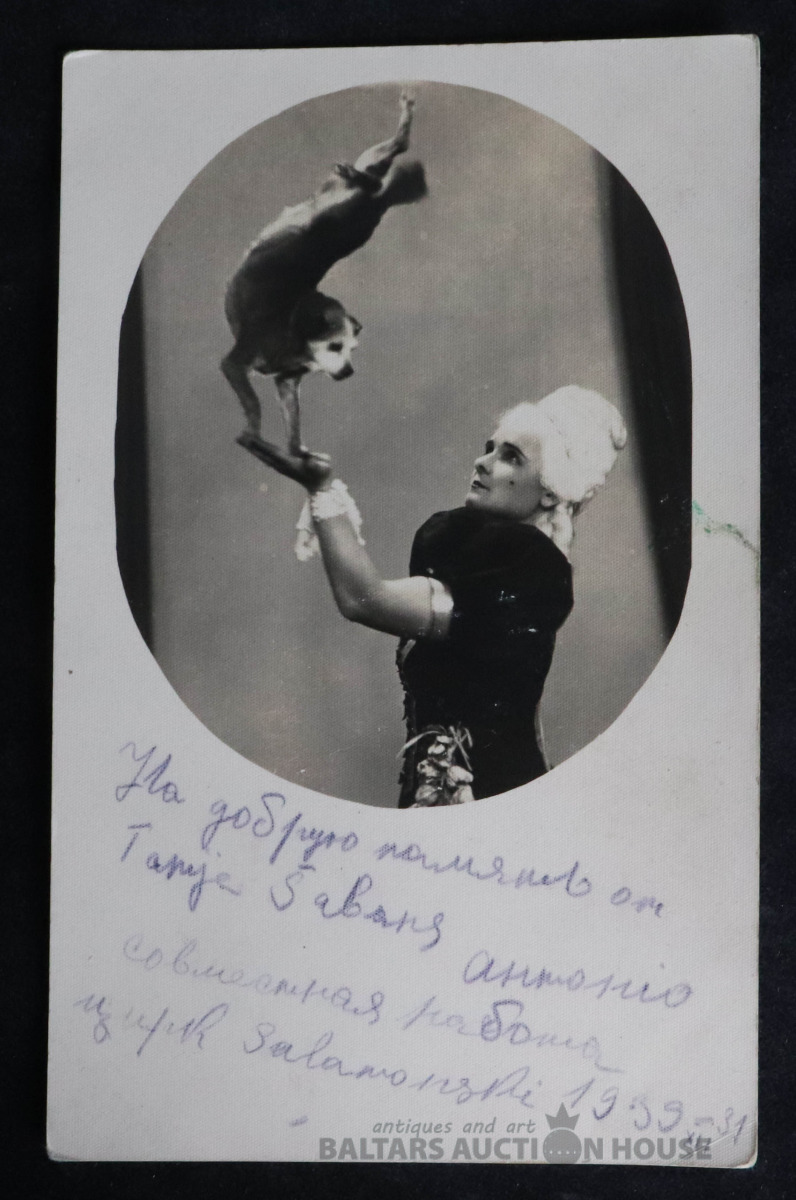 На добрую память от
Tanje Šabans
антонio
совместная работа
цирк Salamonski 1939
antiques and art
BALTARS AUCTION HOUSE